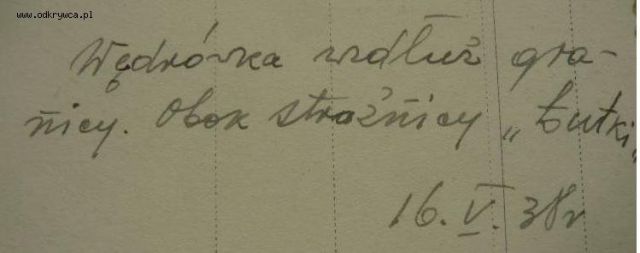 www.odkrywca.pl
Wędrówka wzdłuż gra-
nicy. Obok strażnicy „Łutki"
16. V. 38r